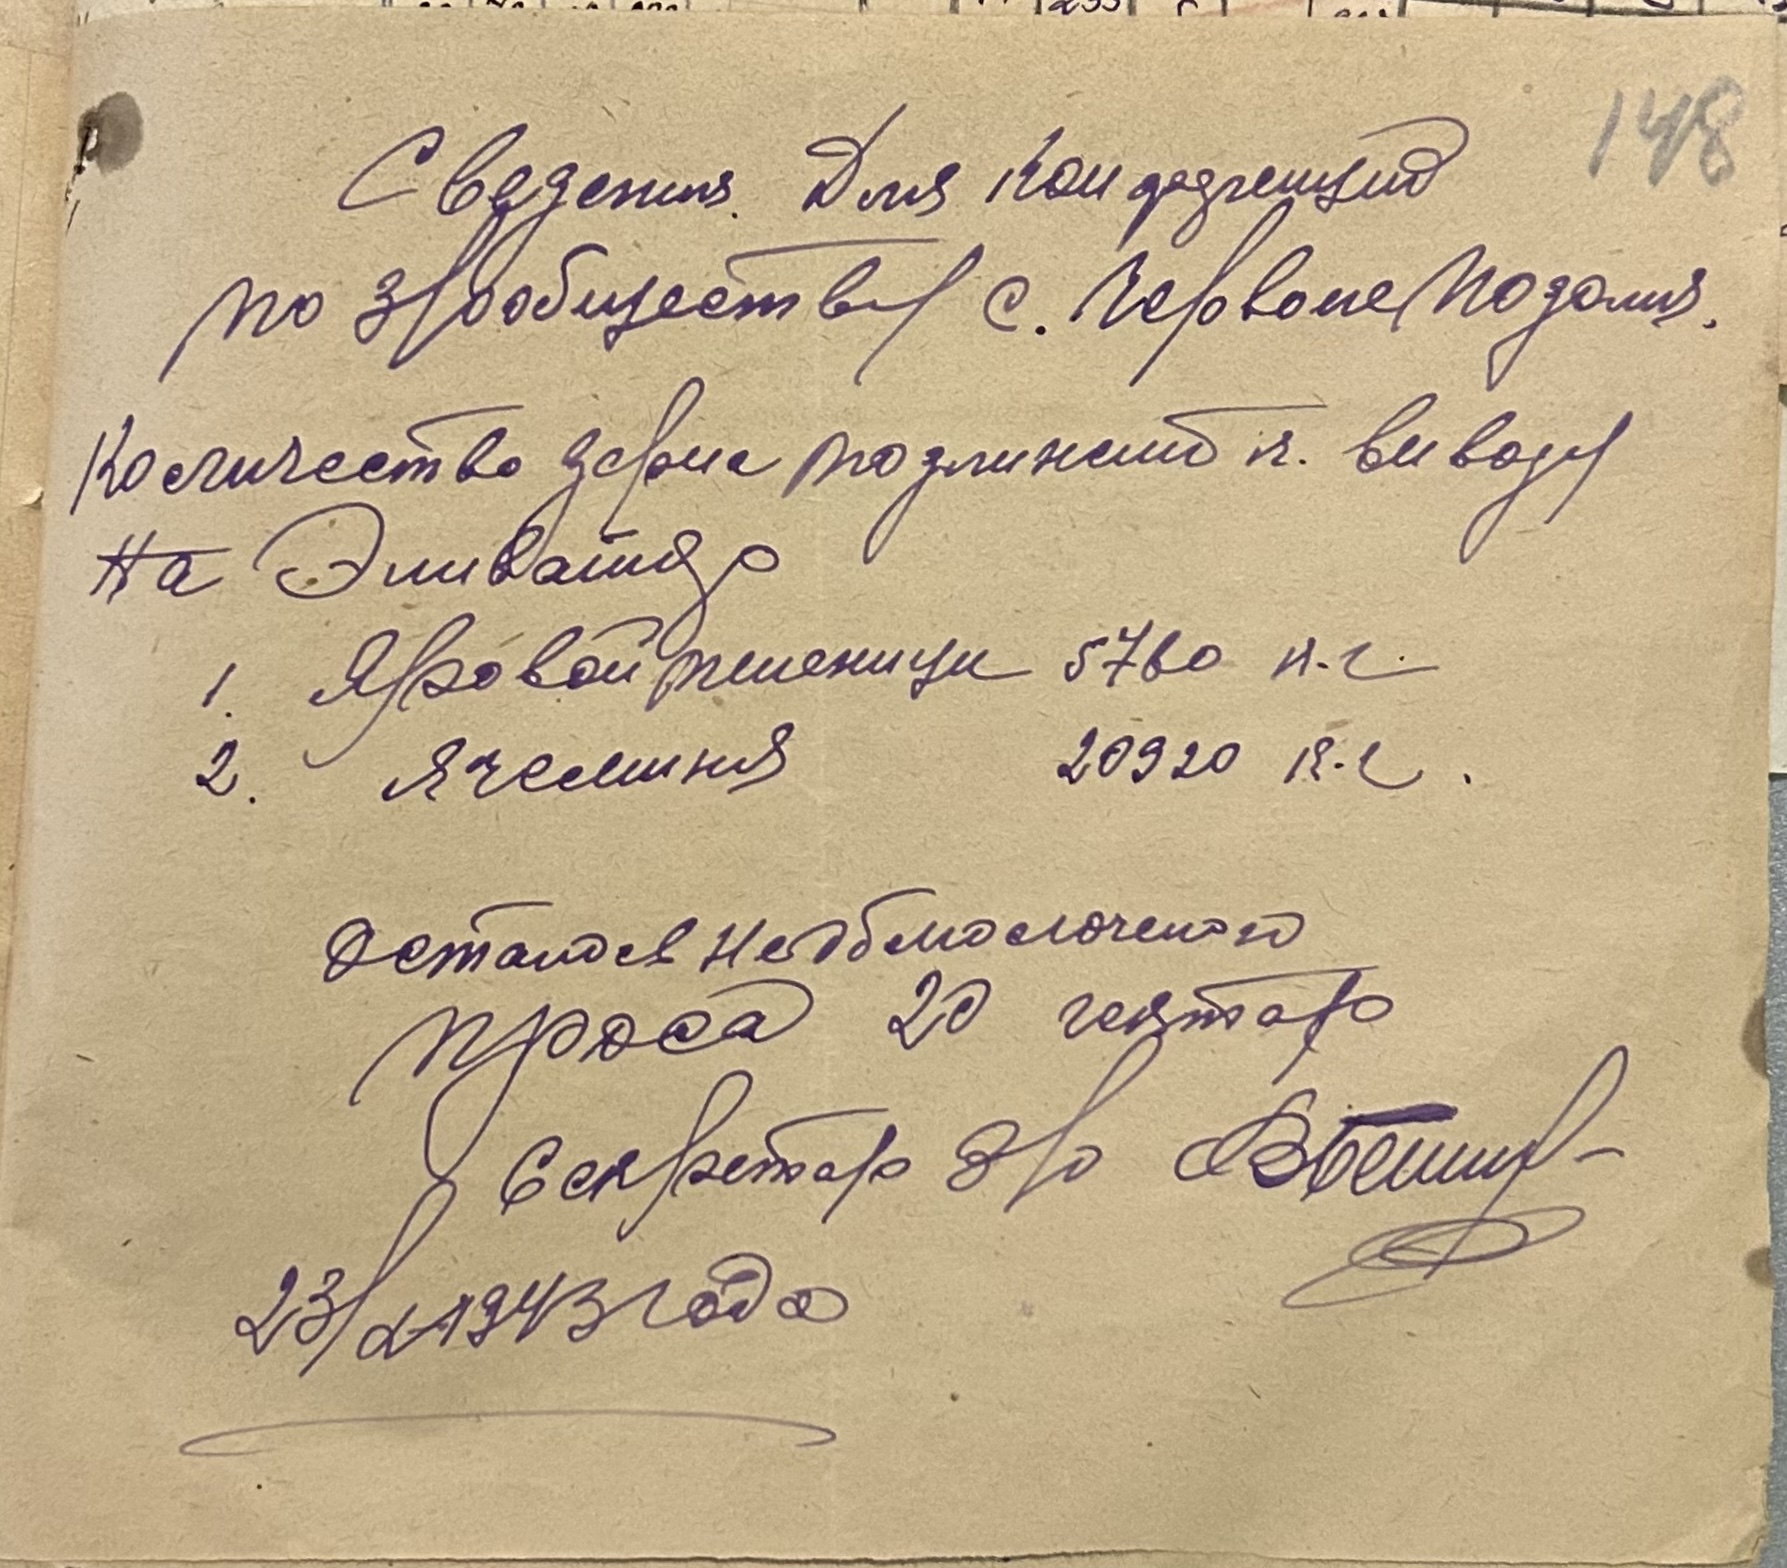 148
Сведения. Для Конфедренций
по зрообществу с. Червоне Подолия.
Количество зерна подлиженит к. виводу
На Эливатяр
1. Яровой пшеници 5760 к.г.
2. Ячеминя 20920 к.г.
Осталось необмолоченого
проса 20 гектар
Секретар зро
23/ 1943 года